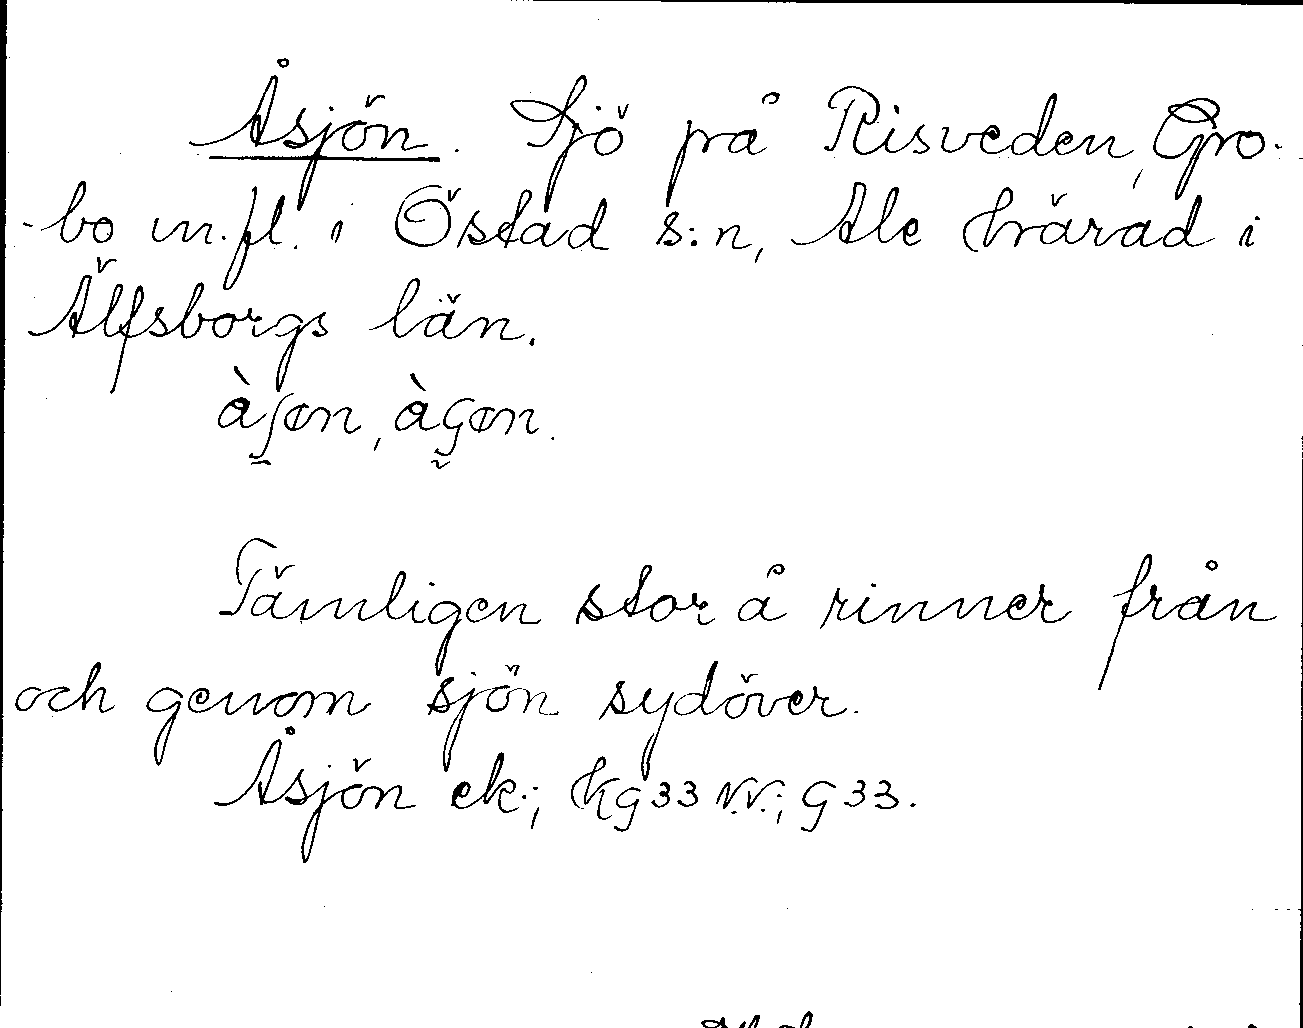 Åsjön. Sjö på Risveden, Gro-
-bo m.fl. i Östad s:n, Ale härad i
Älfsborgs län.

Tämligen stor å rinner från
och genom sjön sydöver.
Åsjön ek.; hkg 33 N.V.; G 33.